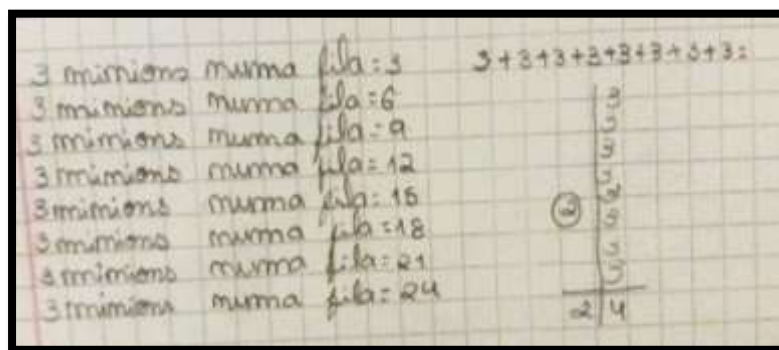 3 minions numa fila = 3
3 minions numa fila = 6
3 minions numa fila = 9
3 minions numa fila = 12
3 minions numa fila = 15
3 minions numa fila = 18
3 minions numa fila = 21
3 minions numa fila = 24
3+3+3+3+3+3+3+3=
3
3
3
3
3
2 3
3
3
2 4